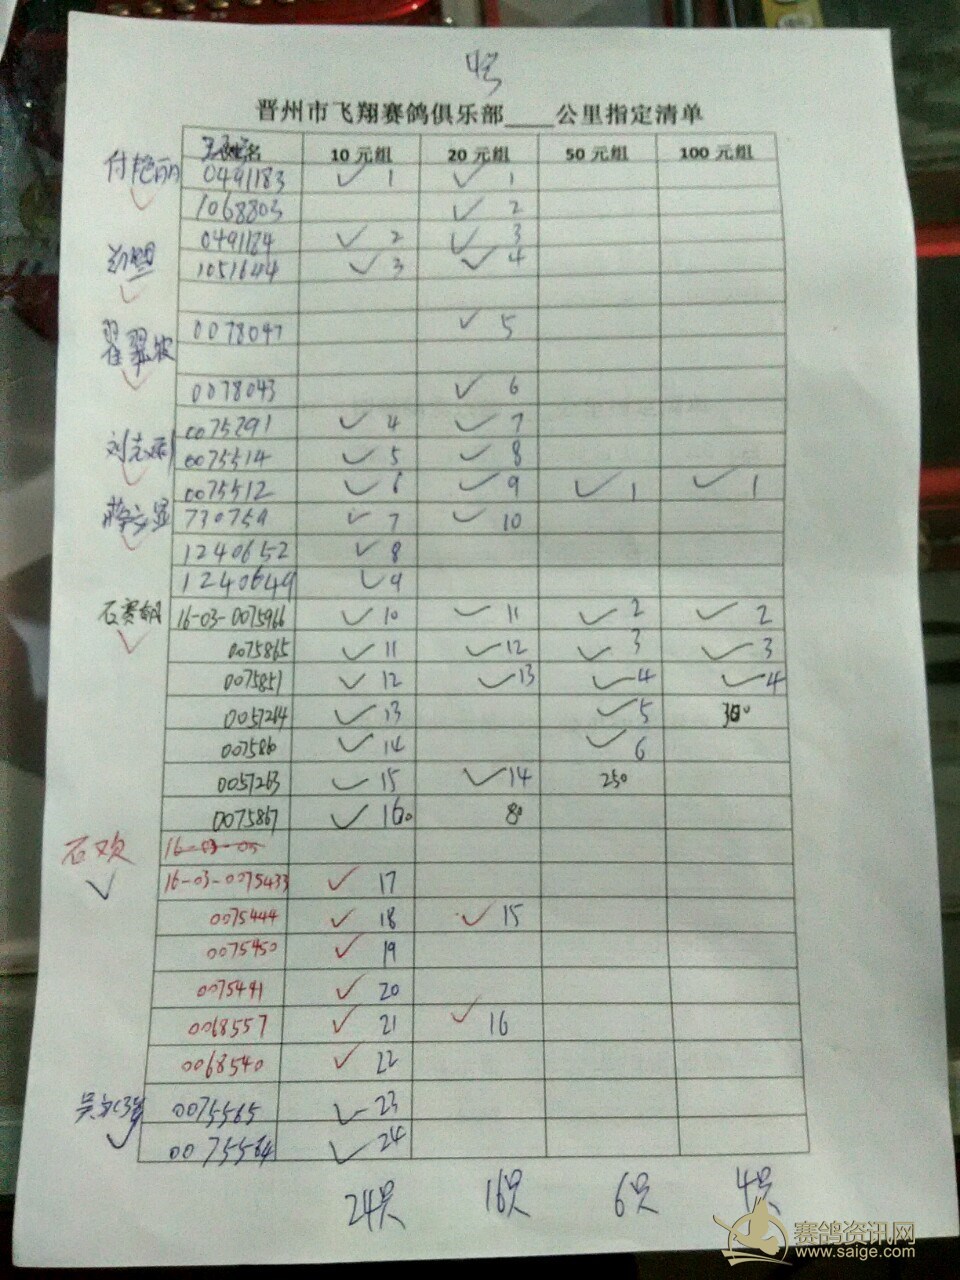 4号
晋州市飞翔赛鸽俱乐部____公里指定清单
姓名 10元组 20元组 50元组 100元组
付艳丽 0491183 ✓ 1 ✓ 1
1068803 ✓ 2
0491184 ✓ 2 ✓ 3
1051644 ✓ 3 ✓ 4
0078047 ✓ 5
翟
0078043 ✓ 6
0075291 ✓ 4 ✓ 7
刘志 0075514 ✓ 5 ✓ 8
0075512 ✓ 6 ✓ 9 ✓ 1 ✓ 1
730759 ✓ 7 ✓ 10
1240652 ✓ 8
1240649 ✓ 9
石赛 16-03-0075966 ✓ 10 ✓ 11 ✓ 2 ✓ 2
0075865 ✓ 11 ✓ 12 ✓ 3 ✓ 3
0075851 ✓ 12 ✓ 13 ✓ 4 ✓ 4
0057264 ✓ 13 ✓ 5 300
007586 ✓ 14 ✓ 6
0057263 ✓ 15 ✓ 14 250
0075867 ✓ 16 80
石欢 16-03-00
16-03-0075433 ✓ 17
0075444 ✓ 18 ✓ 15
0075450 ✓ 19
0075491 ✓ 20
0068557 ✓ 21 ✓ 16
0068540 ✓ 22
吴 0075565 ✓ 23
0075564 ✓ 24
24只 16只 6只 4只
赛鸽资讯网
www.saige.com